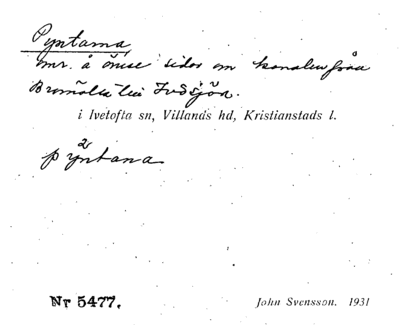 Pyntarna,
omr. å ömse sidor om kanalen från
Bromölla till Ivösjön.
i Ivetofta sn, Villands hd, Kristianstads l.
2
pyntana
Nr 5477.
John Svensson. 1931